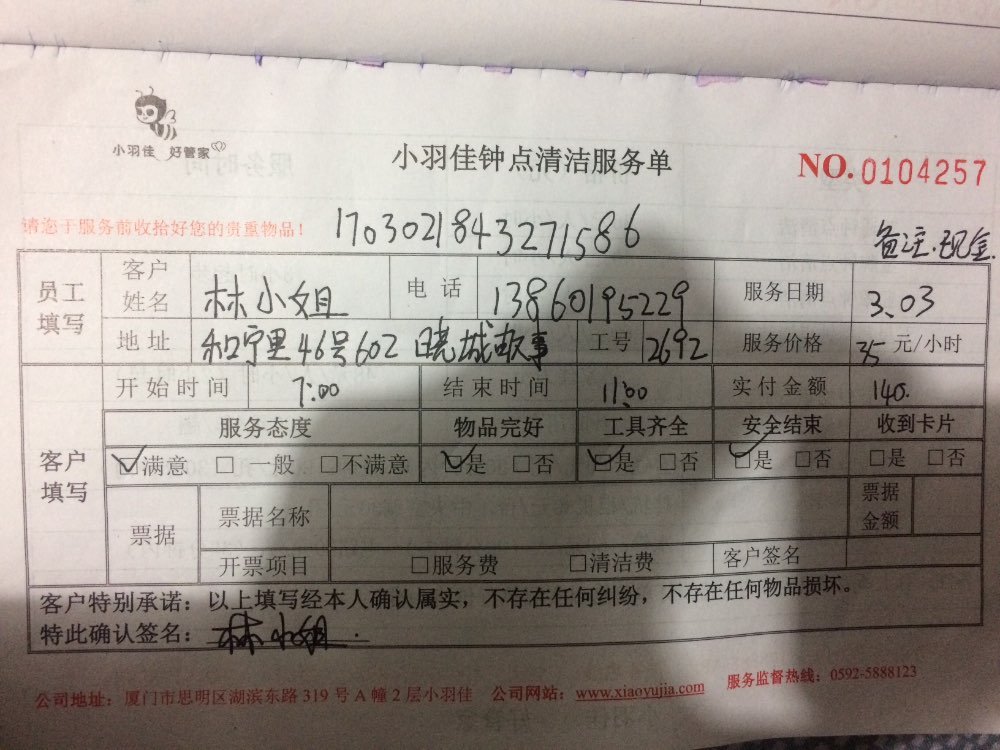 小羽佳 好管家
小羽佳钟点清洁服务单
NO.0104257
请您于服务前收拾好您的贵重物品！
1703021843271586
备注.现金
员工填写 客户姓名 林小姐 电话 13860195229 服务日期 3.03
地址 和宁里46号602 晓城故事 工号 2692 服务价格 35 元/小时
客户填写 开始时间 7:00 结束时间 11:00 实付金额 140.
服务态度 物品完好 工具齐全 安全结束 收到卡片
☑满意 □一般 □不满意 ☑是 □否 ☑是 □否 ☑是 □否 □是 □否
票据 票据名称 票据金额
开票项目 □服务费 □清洁费 客户签名
客户特别承诺：以上填写经本人确认属实，不存在任何纠纷，不存在任何物品损坏。
特此确认签名：林小姐.
公司地址：厦门市思明区湖滨东路 319 号 A 幢 2 层小羽佳 公司网站：www.xiaoyujia.com 服务监督热线：0592-5888123